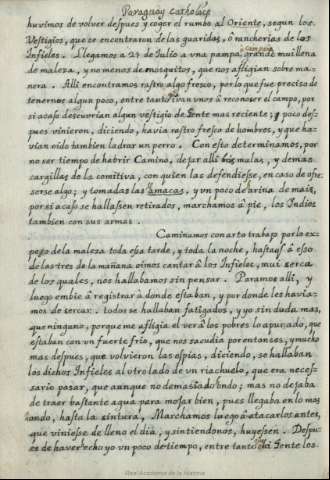 Paraguay Catholico
huvimos de volver despues y coger el rumbo al Oriente, segun los
Vestigios, que se encontraron de las guaridas, ó rancherias de los
Infieles. Llegamos a 24 de Julio a vna pampa, grande mui llena
de maleza, y no menos de mosquitos, que nos afligian sobre ma-
nera. Alli encontramos rastro algo fresco, por lo que fue preciso de
tenernos algun poco, entre tanto ivan vnos á reconoser el campo, por
si acaso descubrian algun vestigio de Jente mas reciente; y poco des-
pues vinieron, diciendo, havia rastro fresco de hombres, y que ha-
vian oido tambien ladrar vn perro. Con esto determinamos, por
no ser tiempo de habrir Camino, dejar alli las mulas, y demas
cargillas de la comitiva, con quien las defendiesse, en caso de ofre
serse algo; y tomadas las amacas, y vn poco de arina de mais,
por si acaso se hallassen retirados, marchamos á pie, los Indios
tambien con sus armas.
Caminamos con arto trabajo por lo ex-
peso de la maleza toda esa tarde, y toda la noche, hasta q̃ á eso
de las tres de la mañana oimos cantar á los Infieles, mui serca
de los quales, nos hallabamos sin pensar. Paramos alli, y
luego embie á registrar á donde estaban, y por donde les havia-
mos de sercar. todos se hallaban fatigados, y yo sin duda mas,
que ninguno, porque me afligia el ver á los pobres
estaban con vn fuerte frio, que nos sacudia por entonses, y mucho
mas despues, que volvieron las espias, diciendo, se hallaban
los dichos Infieles al otro lado de vn riachuelo, que era neces-
sario pasar, que aunque no demasiado hondo; mas no dejaba
de traer bastante agua para mojar bien, pues llegaba en lo mas
ondo, hasta la sintura. Marchamos luego á atacarlos antes,
que viniesse de lleno el dia, y sintiendonos, huyessen. Despu-
es de haver hecho yo vn poco de tiempo, entre tanto la Jente los
Real Academia de la Historia